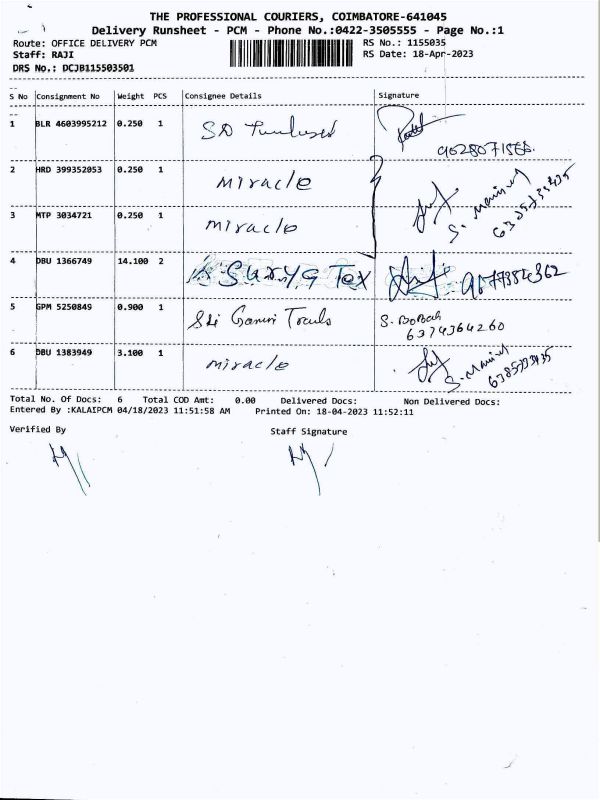 THE PROFESSIONAL COURIERS, COIMBATORE-641045
Delivery Runsheet - PCM - Phone No.:0422-3505555 - Page No.:1
Route: OFFICE DELIVERY PCM RS No.: 1155035
Staff: RAJI RS Date: 18-Apr-2023
DRS No.: DCJB115503501
S No Consignment No Weight PCS Consignee Details Signature
1 BLR 4603995212 0.250 1 SD
2 HRD 399352053 0.250 1 miracle
3 MTP 3034721 0.250 1 miracle
S. 
4 DBU 1366749 14.100 2 Surya Tex 9677384362
5 GPM 5250849 0.900 1 Sri
6374364260
6 DBU 1383949 3.100 1 miracle
S.
Total No. Of Docs: 6 Total COD Amt: 0.00 Delivered Docs: Non Delivered Docs:
Entered By :KALAIPCM 04/18/2023 11:51:58 AM Printed On: 18-04-2023 11:52:11
Verified By Staff Signature